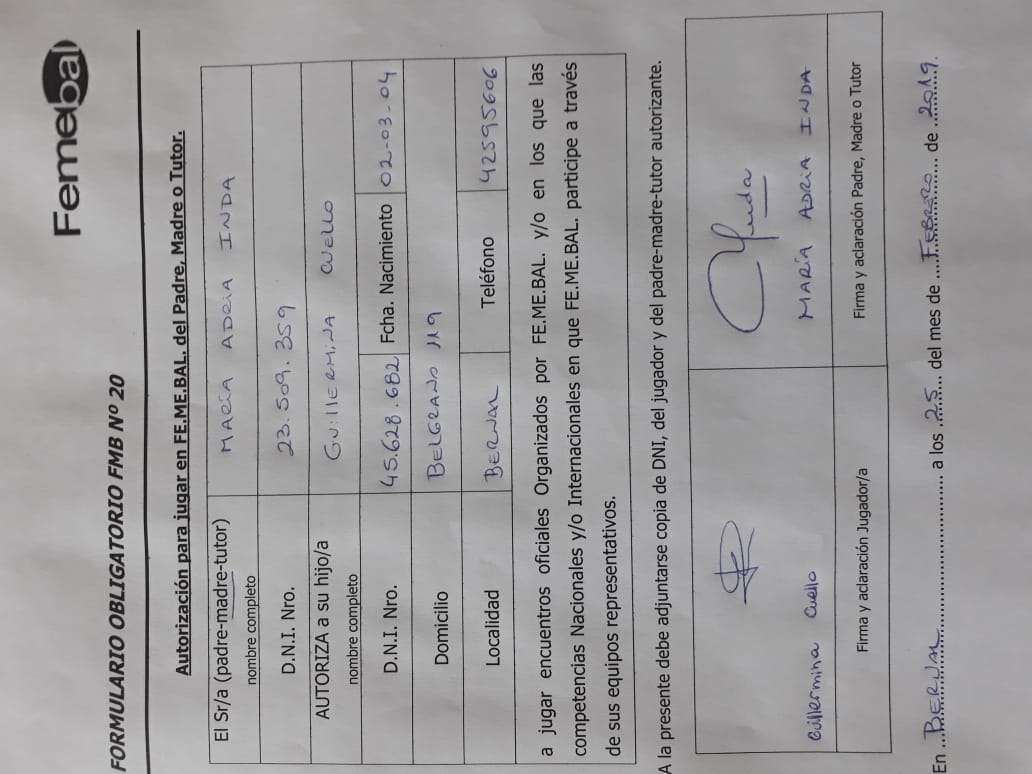 Femebal
FORMULARIO OBLIGATORIO FMB Nº 20
Autorización para jugar en FE.ME.BAL. del Padre, Madre o Tutor.
El Sr/a (padre-madre-tutor) MARÍA ADRIA INDA
nombre completo
D.N.I. Nro. 23.509.359
AUTORIZA a su hijo/a GUILLERMINA CUELLO
nombre completo
D.N.I. Nro. 45.628.682 Fcha. Nacimiento 02-03-04
Domicilio BELGRANO 119
Localidad BERNAL Teléfono 42595606
a jugar encuentros oficiales Organizados por FE.ME.BAL. y/o en los que las
competencias Nacionales y/o Internacionales en que FE.ME.BAL. participe a través
de sus equipos representativos.
A la presente debe adjuntarse copia de DNI, del jugador y del padre-madre-tutor autorizante.
Inda
Guillermina Cuello MARÍA ADRIA INDA
Firma y aclaración Jugador/a Firma y aclaración Padre, Madre o Tutor
En BERNAL a los 25 del mes de FEBRERO de 2019.